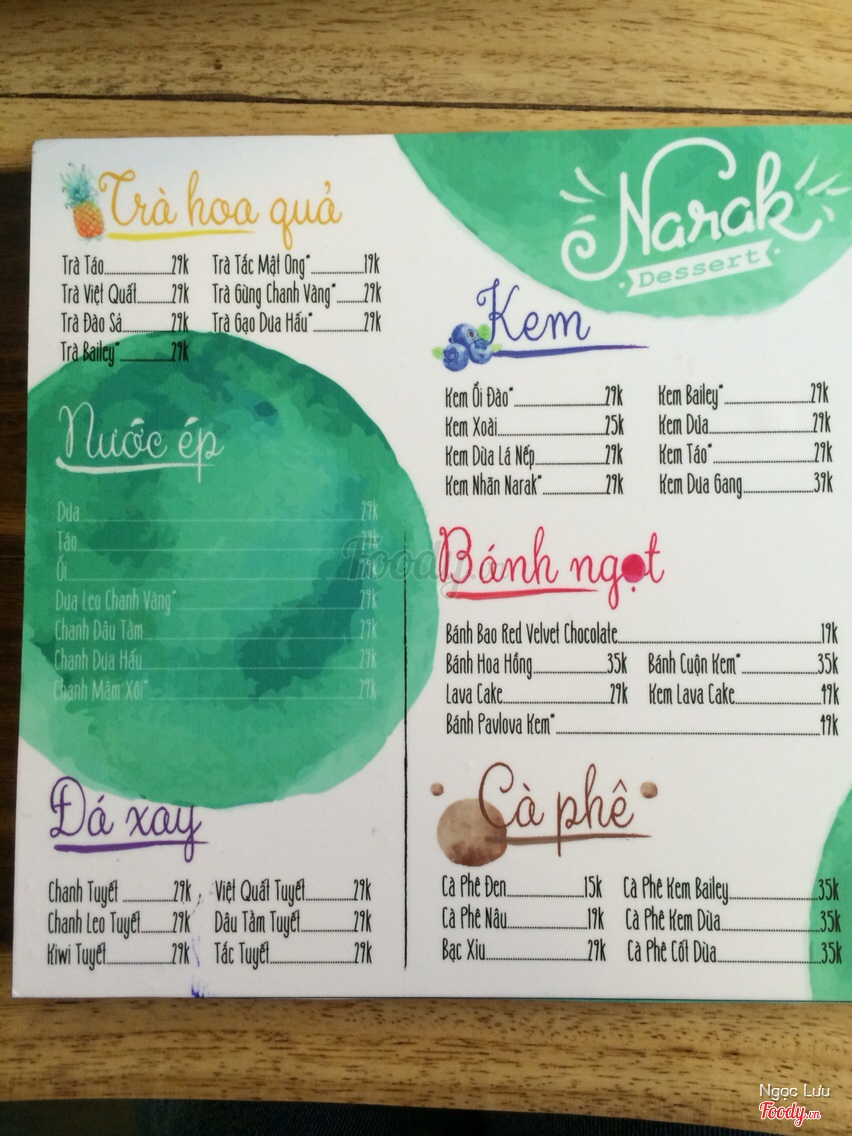 Narak
Dessert
Trà hoa quả
Trà Táo 29k
Trà Việt Quất 29k
Trà Đào Sả 29k
Trà Bailey* 29k
Trà Tắc Mật Ong* 19k
Trà Gừng Chanh Vàng* 29k
Trà Gạo Dưa Hấu* 29k
Nước ép
Dứa 29k
Táo 29k
Ổi 29k
Dưa Leo Chanh Vàng* 29k
Chanh Dâu Tằm 29k
Chanh Dưa Hấu 29k
Chanh Mâm Xôi* 29k
Đá xay
Chanh Tuyết 29k
Chanh Leo Tuyết 29k
Kiwi Tuyết 29k
Việt Quất Tuyết 29k
Dâu Tằm Tuyết 29k
Tắc Tuyết 29k
Kem
Kem Ổi Đào* 29k
Kem Xoài 25k
Kem Dừa Lá Nếp 29k
Kem Nhãn Narak* 29k
Kem Bailey* 29k
Kem Dứa 29k
Kem Táo* 29k
Kem Dưa Gang 39k
Bánh ngọt
Bánh Bao Red Velvet Chocolate 19k
Bánh Hoa Hồng 35k
Bánh Cuộn Kem* 35k
Lava Cake 29k
Kem Lava Cake 49k
Bánh Pavlova Kem* 49k
Cà phê
Cà Phê Đen 15k
Cà Phê Nâu 19k
Bạc Xỉu 29k
Cà Phê Kem Bailey 35k
Cà Phê Kem Dừa 35k
Cà Phê Cốt Dừa 35k
Foody
Ngọc Lưu
Foody.vn